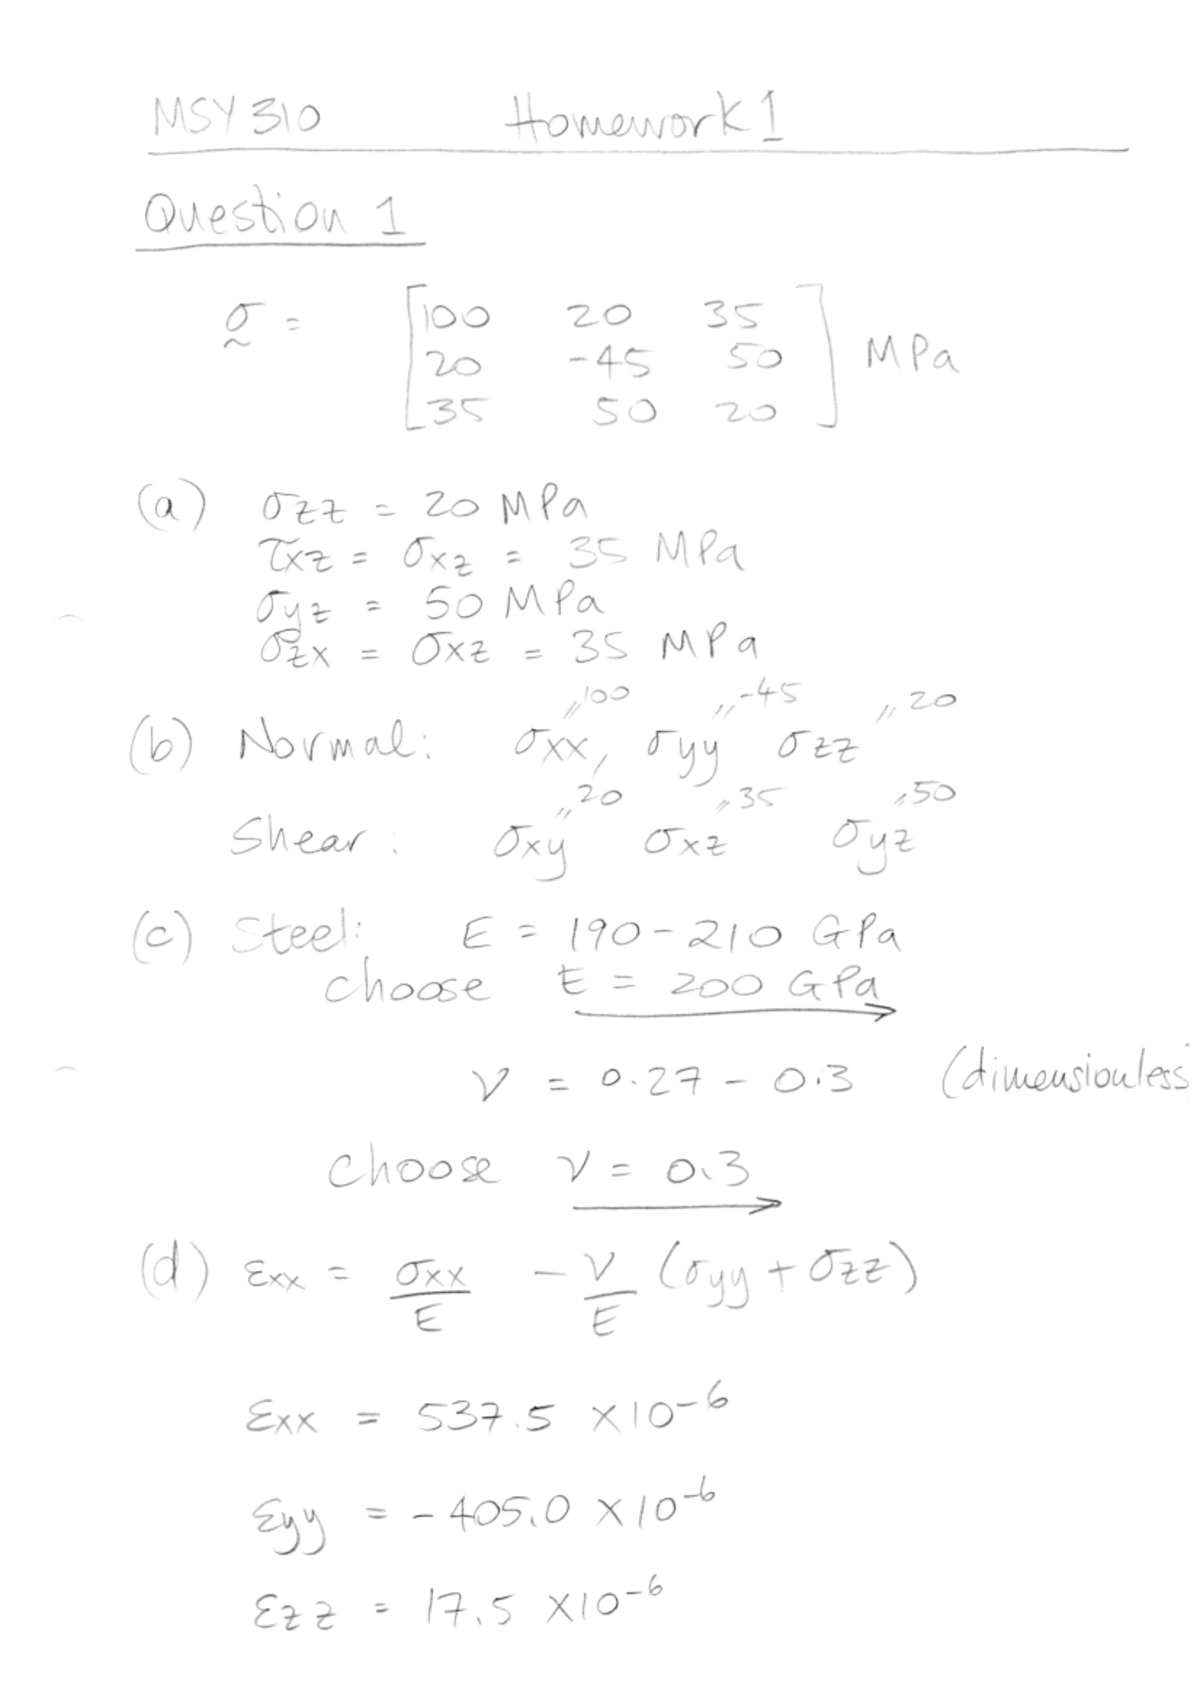 MSY 310 Homework 1
Question 1
σ = [100 20 35
20 -45 50
35 50 20] MPa
(a) σzz = 20 MPa
τxz = σxz = 35 MPa
σyz = 50 MPa
σzx = σxz = 35 MPa
"100 "-45 "20
(b) Normal: σxx, σyy σzz
"20 "35 "50
Shear: σxy σxz σyz
(c) Steel: E = 190-210 GPa
choose E = 200 GPa
ν = 0.27 - 0.3 (dimensionless
choose ν = 0.3
(d) εxx = σxx/E - ν/E (σyy + σzz)
εxx = 537.5 ×10^-6
εyy = -405.0 ×10^-6
εzz = 17.5 ×10^-6